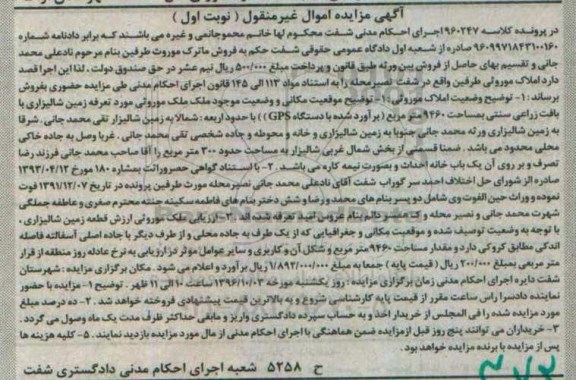 آگهی مزایده اموال غیرمنقول ( نوبت اول )
در پرونده کلاسه ۹۶۰۲۴۷ اجرای احکام مدنی شفت محکوم لها خانم محموجانمی و غیره می باشند که برابر دادنامه شماره
۹۶۰۹۹۷۱۸۴۳۱۰۰۱۶۰ صادره از شعبه اول دادگاه عمومی حقوقی شفت حکم به فروش ماترک موروث طرفین بنام مرحوم نادعلی محمد
جانی و تقسیم بهای حاصل از فروش بین ورثه طبق قانون و پرداخت مبلغ ۵۰۰/۰۰۰ ریال نیم عشر در حق صندوق دولت . لذا این اجرا قصد
دارد املاک موروثی طرفین واقع در شفت نصیر محله را به استناد مواد ۱۱۳ الی ۱۴۵ قانون اجرای احکام مدنی طی مزایده حضوری بفروش
برساند : ۱- توضیح وضعیت املاک موروثی : ۱- توضیح موقعیت مکانی و وضعیت موجود ملک ملک موروثی مورد تعرفه زمین شالیزاری با
بافت زراعی سنتی بمساحت ۹۴۶۰ متر مربع ( بر آورد شده با دستگاه GPS ) با حدود اربعه : شمالا به زمین شالیزار تقی محمد جانی . شرقا
به زمین شالیزاری ورثه محمد جانی جنوبا به زمین شالیزاری و خانه و محوطه و جاده شخصی تقی محمد جانی . غربا وصل به جاده خاکی
محلی محدود می باشد . ضمنا قسمتی از بخش شمال غربی شالیزار به مساحت حدود ۳۰۰ متر مربع را آقا صاحب محمد جانی فرزند رضا
تصرف و بر روی آن یک باب خانه احداث و بصورت نیمه کاره می باشد . ۲- با استناد گواهی حصروراثت بشماره ۱۸۰ مورخ ۱۳۹۳/۰۴/۱۲
صادره از شورای حل اختلاف احمد سر گوراب شفت آقای نادعلی محمد جانی نصیر محله مورث طرفین پرونده در تاریخ ۱۳۹۱/۱۲/۰۷ فوت
نموده و وراث حین الفوت وی شامل دو پسر بنام های محمد و رضا و شش دختر بنام های فاطمه سکینه حنته محترم صغری و عاطفه جملگی
شهرت محمد جانی و نصیر محله و یک همسر دائم بنام عروس امید تعرفه شده اند . ۳- ارزیابی ملک موروثی ارزش قطعه زمین شالیزاری ،
با توجه به وضعیت توصیف شده و موقعیت مکانی و جغرافیایی که از یک طرف به جاده محلی و از طرف دیگر با جاده اصلی آسفالته فاصله
اندکی مطابق کروکی دارد و مقدار مساحت ۹۴۶۰ متر مربع و شکل آن و کاربری و سایر عوامل موثر در ارزیابی به نرخ عادله روز منطقه از قرار
متر مربعی بمبلغ ۲۰۰/۰۰۰ ریال ( قیمت پایه ) جمعا به مبلغ ۱/۸۹۲/۰۰۰/۰۰۰ ریال برآورد و اعلام می شود . مکان برگزاری مزایده : شهرستان
شفت دایره اجرای احکام مدنی زمان برگزاری مزایده : روز یکشنبه مورخه ۱۳۹۶/۱۰/۰۳ ساعت ۱۰ الی ۱۱ ظهر . توضیح ۱- مزایده با حضور
نماینده دادسرا راس ساعت مقرر از قیمت پایه کارشناسی شروع و به بالاترین قیمت پیشنهادی فروخته خواهد شد . ۲- ده درصد مبلغ
مورد مزایده شده را فی المجلس از خریدار اخذ و به حساب سپرده دادگستری واریز و مابقی حداکثر ظرف مدت یک ماه وصول می گردد .
۳- خریداران می توانند پنج روز قبل از مزایده ضمن هماهنگی با اجرای احکام مدنی از مال مورد مزایده بازدید نمایند . ۵- کلیه هزینه ها
پس از مزایده با برنده مزایده خواهد بود .
ح ۵۲۵۸ شعبه اجرای احکام مدنی دادگستری شفت